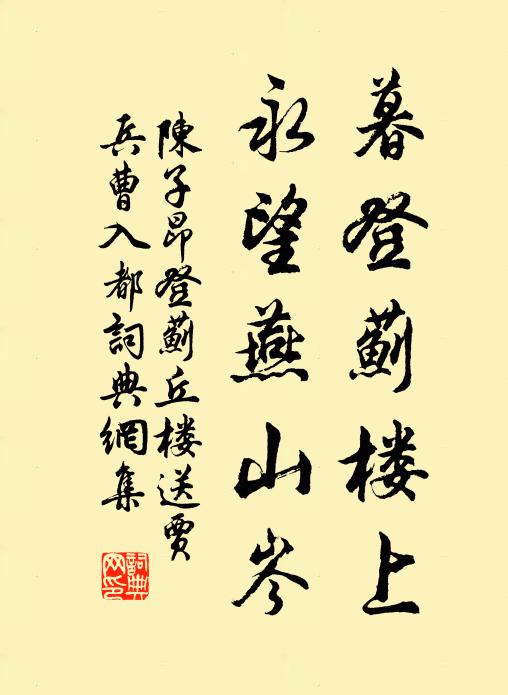 暮登薊楼上
永望燕山岑
陳子昂登薊丘楼送賈
兵曹入都詞典網集
詞典
网印